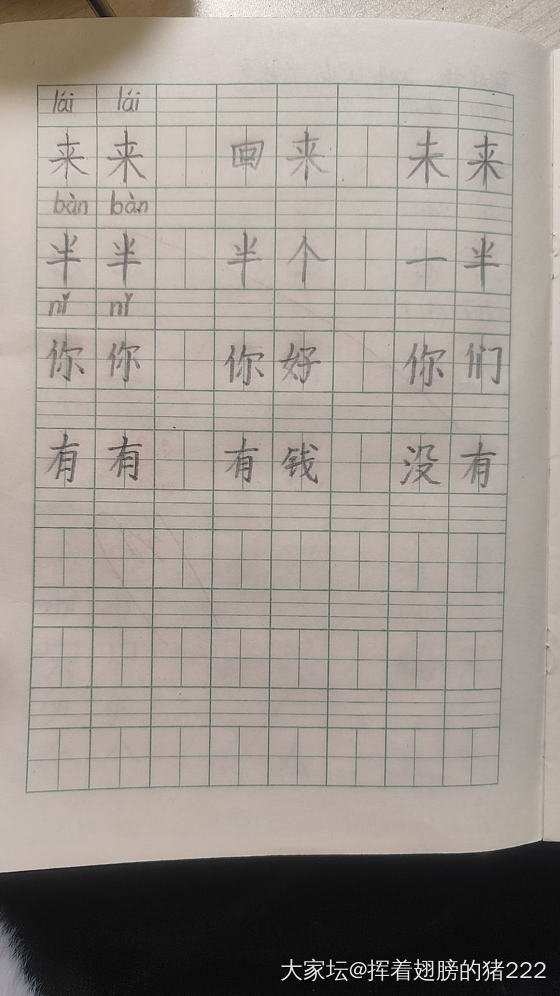 lái lái
来 来 回 来 未 来
bàn bàn
半 半 半 个 一 半
nǐ nǐ
你 你 你 好 你 们
有 有 有 钱 没 有
大家坛@挥着翅膀的猪222